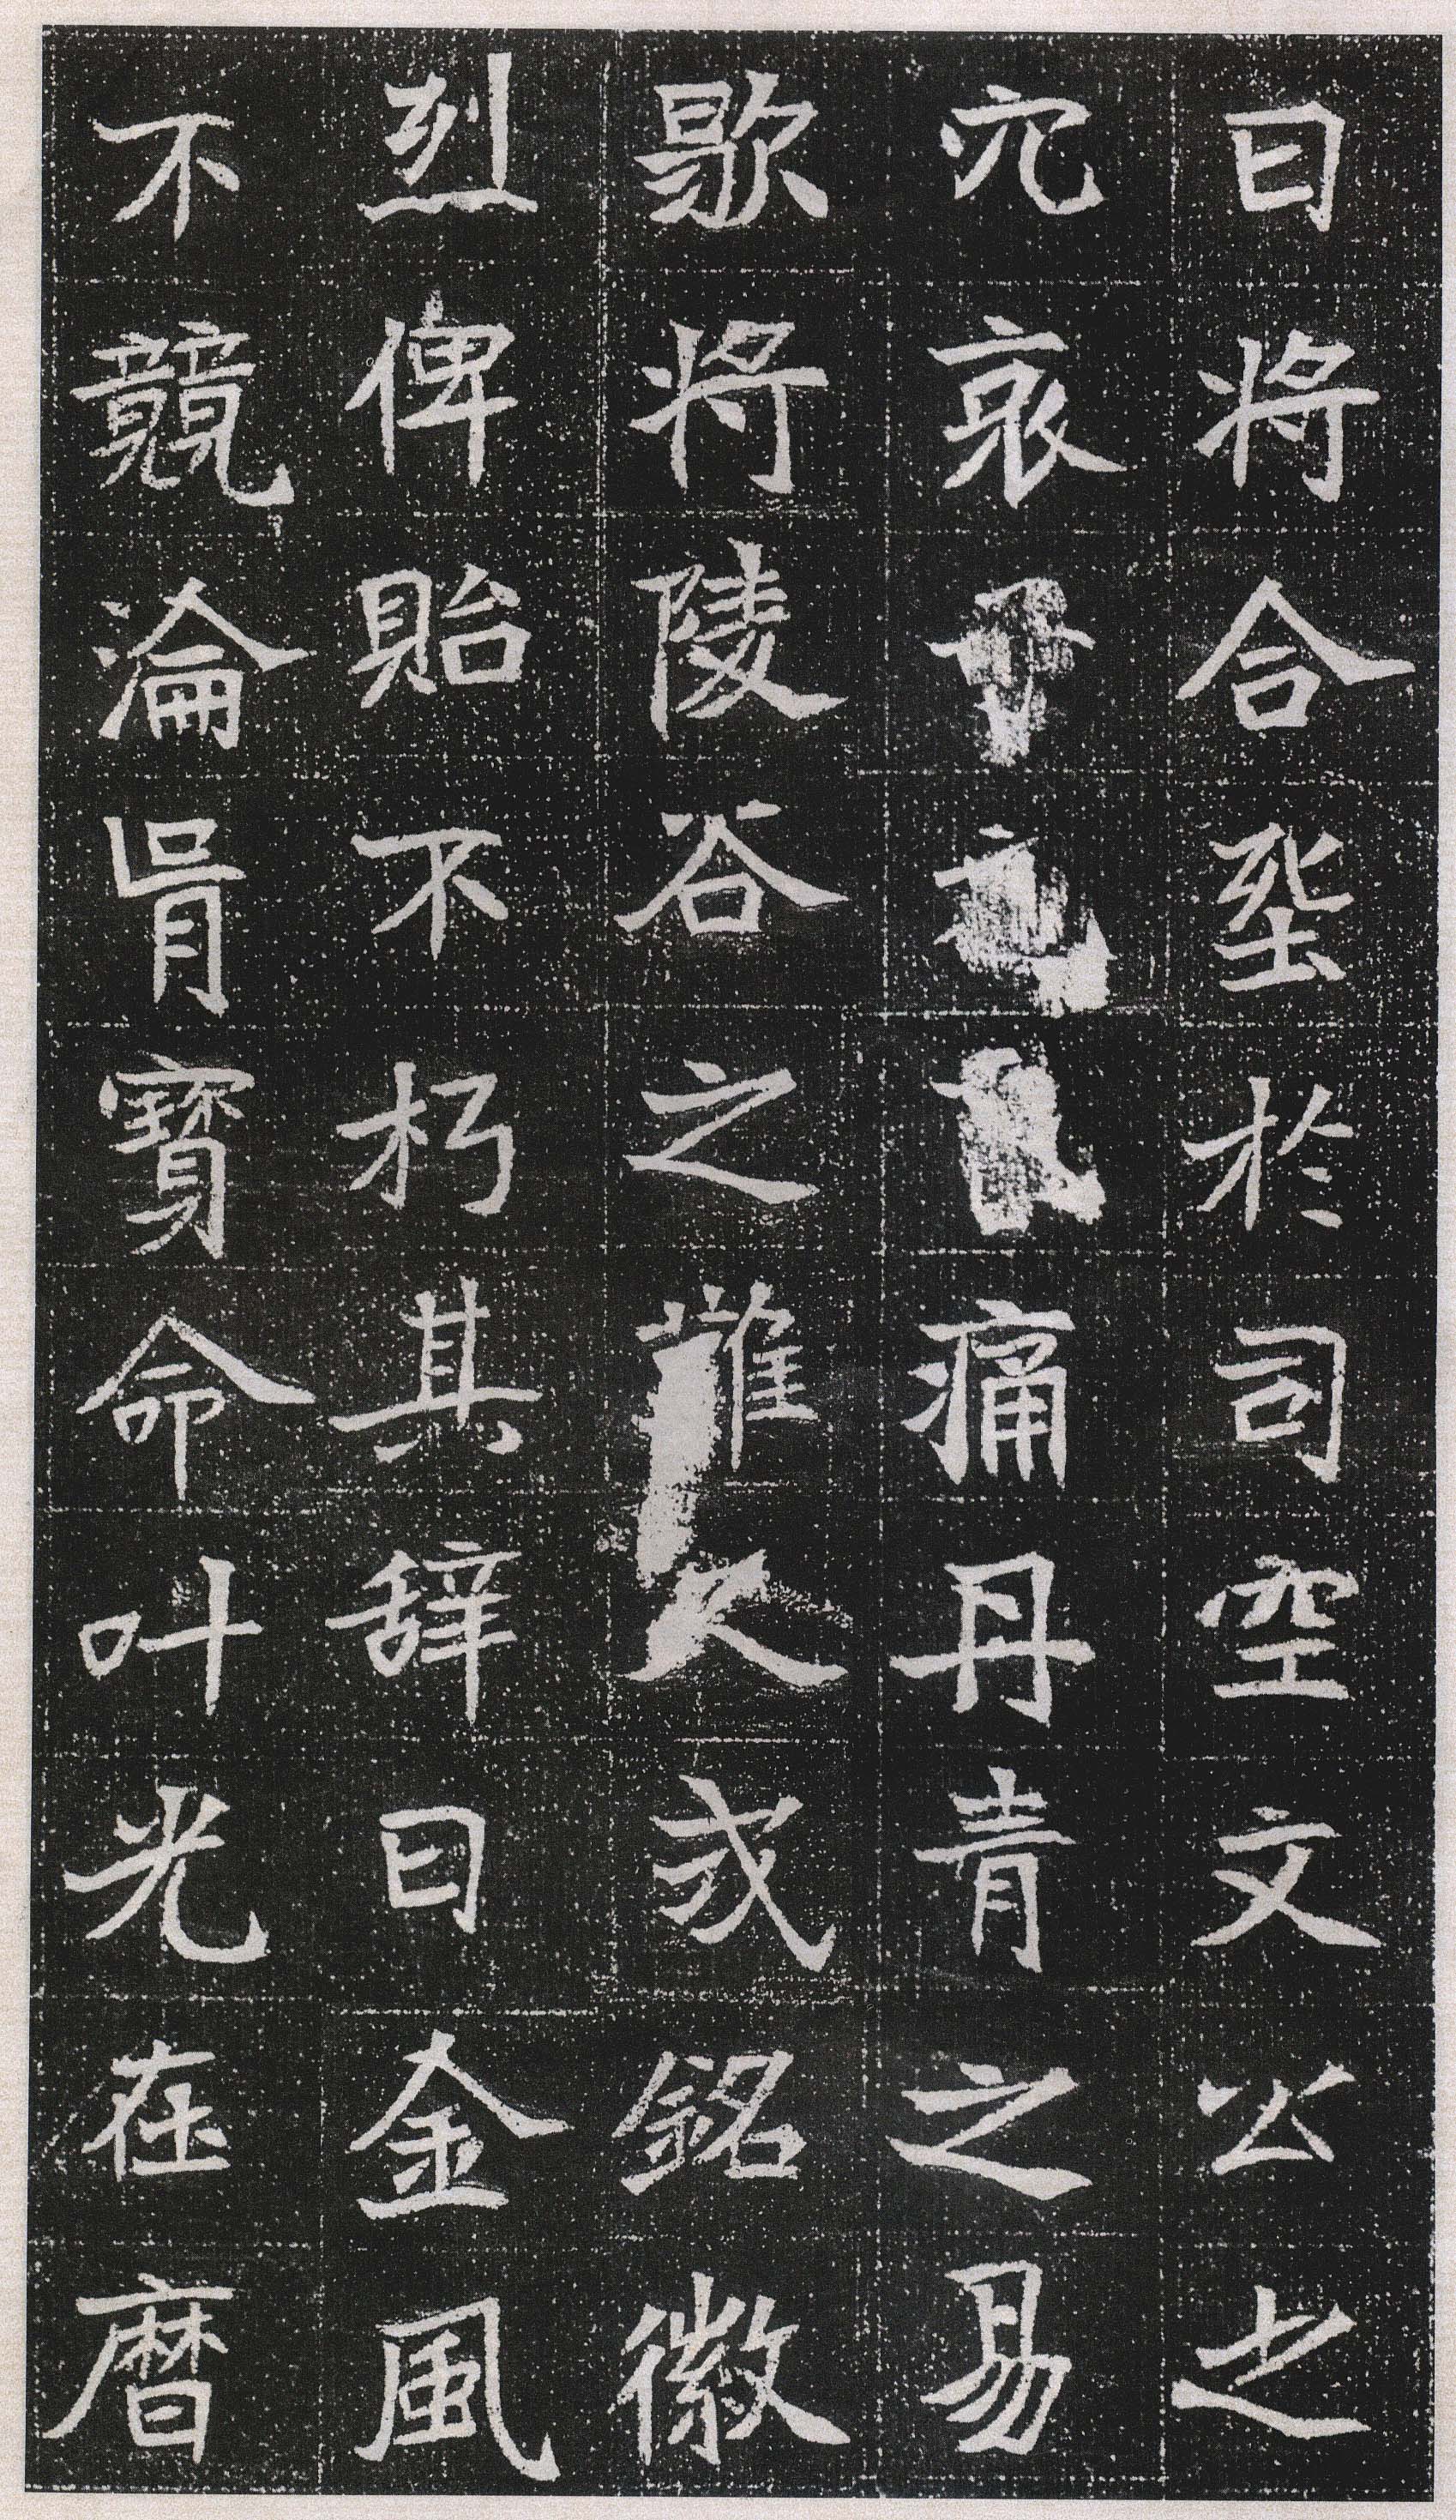 日將合塟於司空文公之
穴哀痛丹青之易
歇將陵谷之難久式銘徽
烈俾貽不朽其辞曰金風
不競淪胥寳命叶光在暦